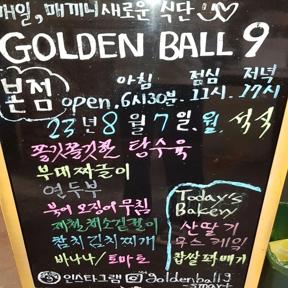 매일, 매끼니 새로운 식단
GOLDEN BALL 9
본점
아침 점심 저녁
open. 6시30분. 11시. 17시
23년 8월 7일. 월. 석식
쫄깃쫄깃한 탕수육
부대짜글이
연두부
북어 오징어무침
제철 채소겉절이
참치김치찌개
바나나/토마트
Today's
Bakery
산딸기
무스케잌
찹쌀꽈배기
인스타그램 @goldenball9